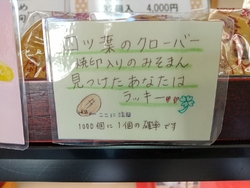 個入 4,000円
四ツ葉のクローバー
焼印入りのみそまん
見つけたあなたは
ラッキー
ここに注目
1000個に1個の確率です